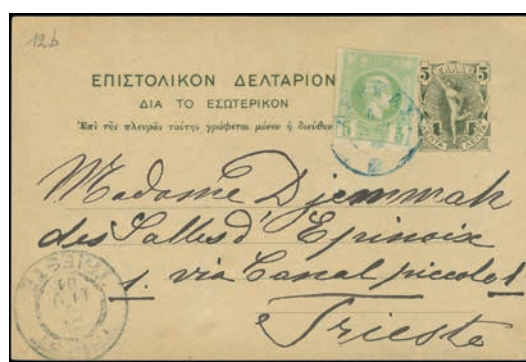 12b
ΕΠΙΣΤΟΛΙΚΟΝ ΔΕΛΤΑΡΙΟΝ
ΔΙΑ ΤΟ ΕΣΩΤΕΡΙΚΟΝ
Ἐπὶ τῆς πλευρᾶς ταύτης γράφεται μόνον ἡ διεύθυν
5 5
5 5
Madame Djemmah
des Salles d'Epinoix
1. via Canal piccolo 1
Trieste
TRIESTE